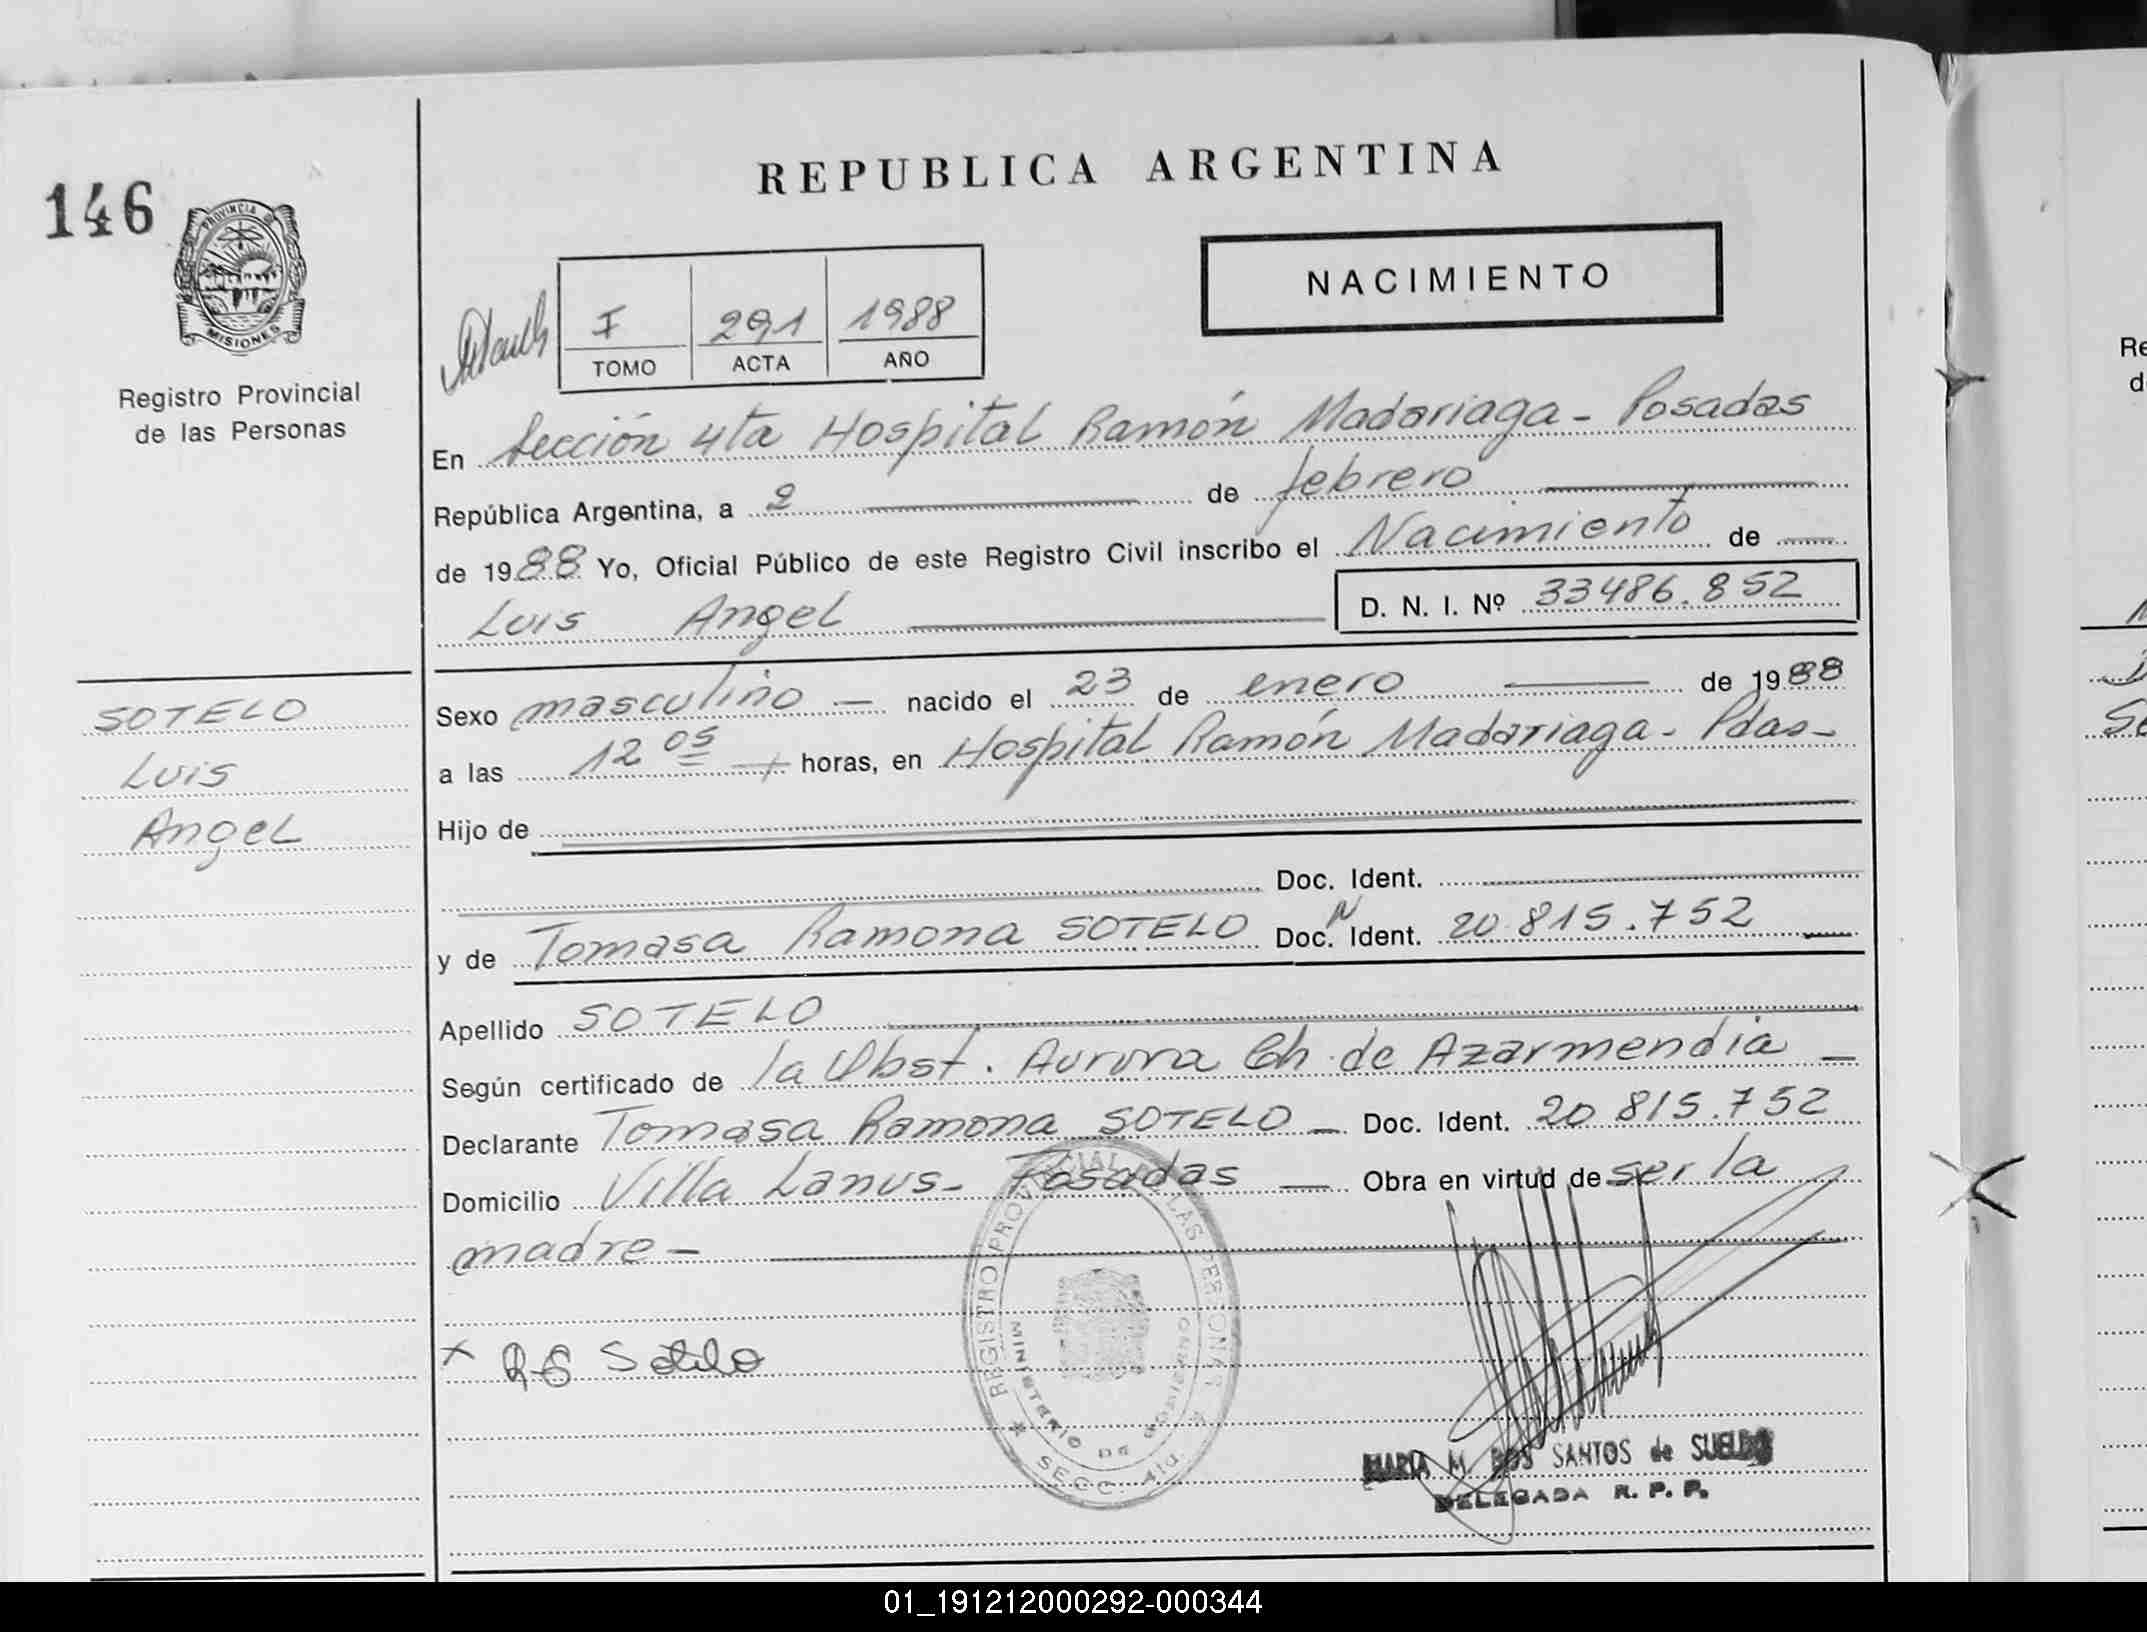 REPUBLICA ARGENTINA
146
PROVINCIA DE
MISIONES
Registro Provincial
de las Personas
NACIMIENTO
I 291 1988
TOMO ACTA AÑO
En Sección 4ta Hospital Ramón Madariaga - Posadas
República Argentina, a 2 de febrero
de 1988 Yo, Oficial Público de este Registro Civil inscribo el Nacimiento de
Luis Angel D. N. I. Nº 33486.852
SOTELO
Luis
Angel
Sexo masculino — nacido el 23 de enero de 1988
a las 12 05 horas, en Hospital Ramón Madariaga - Pdas -
Hijo de
Doc. Ident.
y de Tomasa Ramona SOTELO Doc. N Ident. 20.815.752
Apellido SOTELO
Según certificado de la Obst. Aurora Ch. de Azarmendia —
Declarante Tomasa Ramona SOTELO — Doc. Ident. 20.815.752
Domicilio Villa Lanus - Posadas — Obra en virtud de ser la
madre -
REGISTRO PROVINCIAL DE LAS PERSONAS
MINISTERIO DE GOBIERNO
SECC. 4ta.
x R S Sotelo
MARIA M. DOS SANTOS de SUELDO
DELEGADA R. P. P.
Re
d
01_191212000292-000344